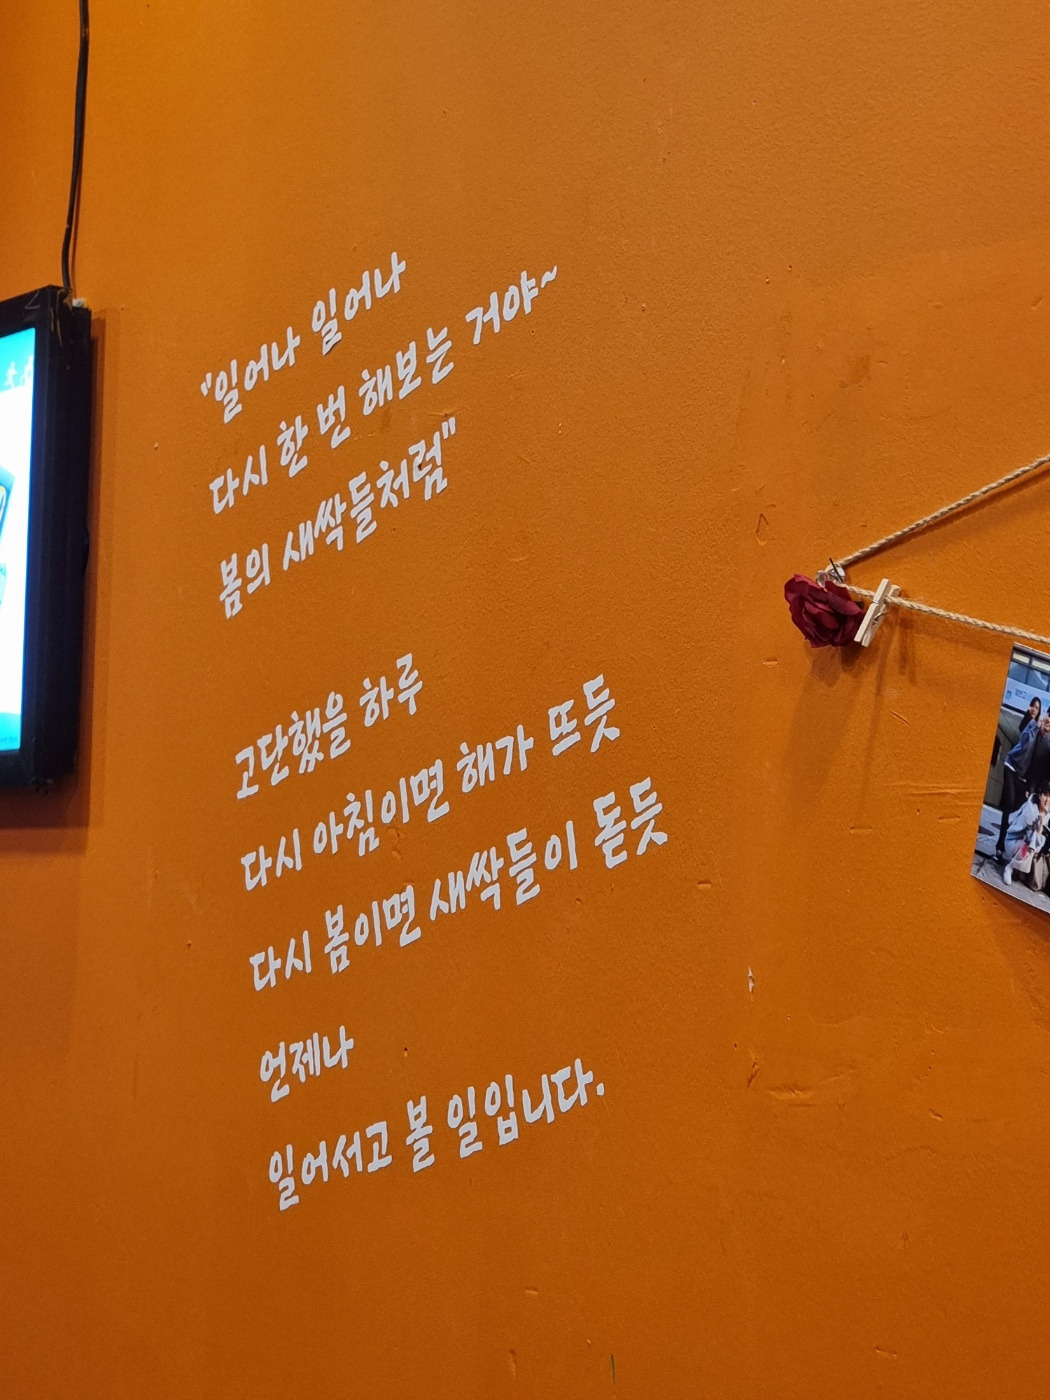 "일어나 일어나
다시 한 번 해보는 거야~
봄의 새싹들처럼"
고단했을 하루
다시 아침이면 해가 뜨듯
다시 봄이면 새싹들이 돋듯
언제나
일어서고 볼 일입니다.